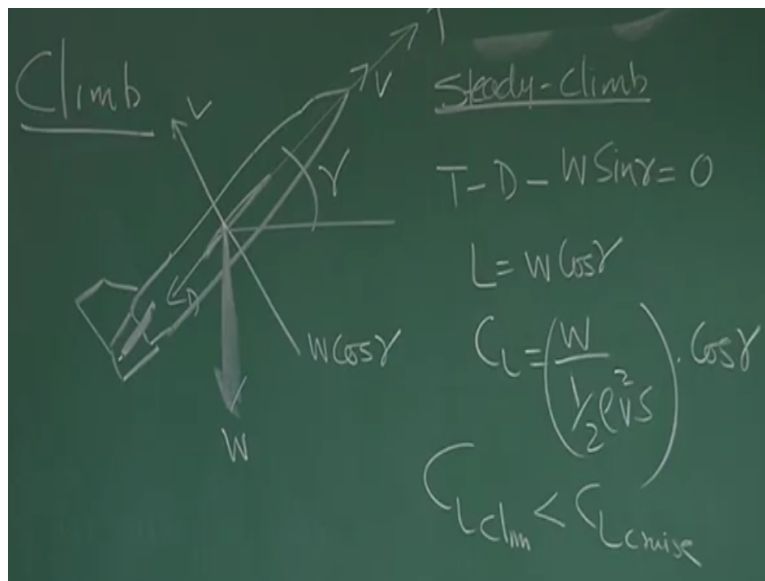 Climb
T
V
L
γ
D
W Cosγ
W
Steady-Climb
T-D-W Sinγ = 0
L = W Cosγ
C_L = (W / ½ρV²S) . Cosγ
C_L Clim < C_L Cruise